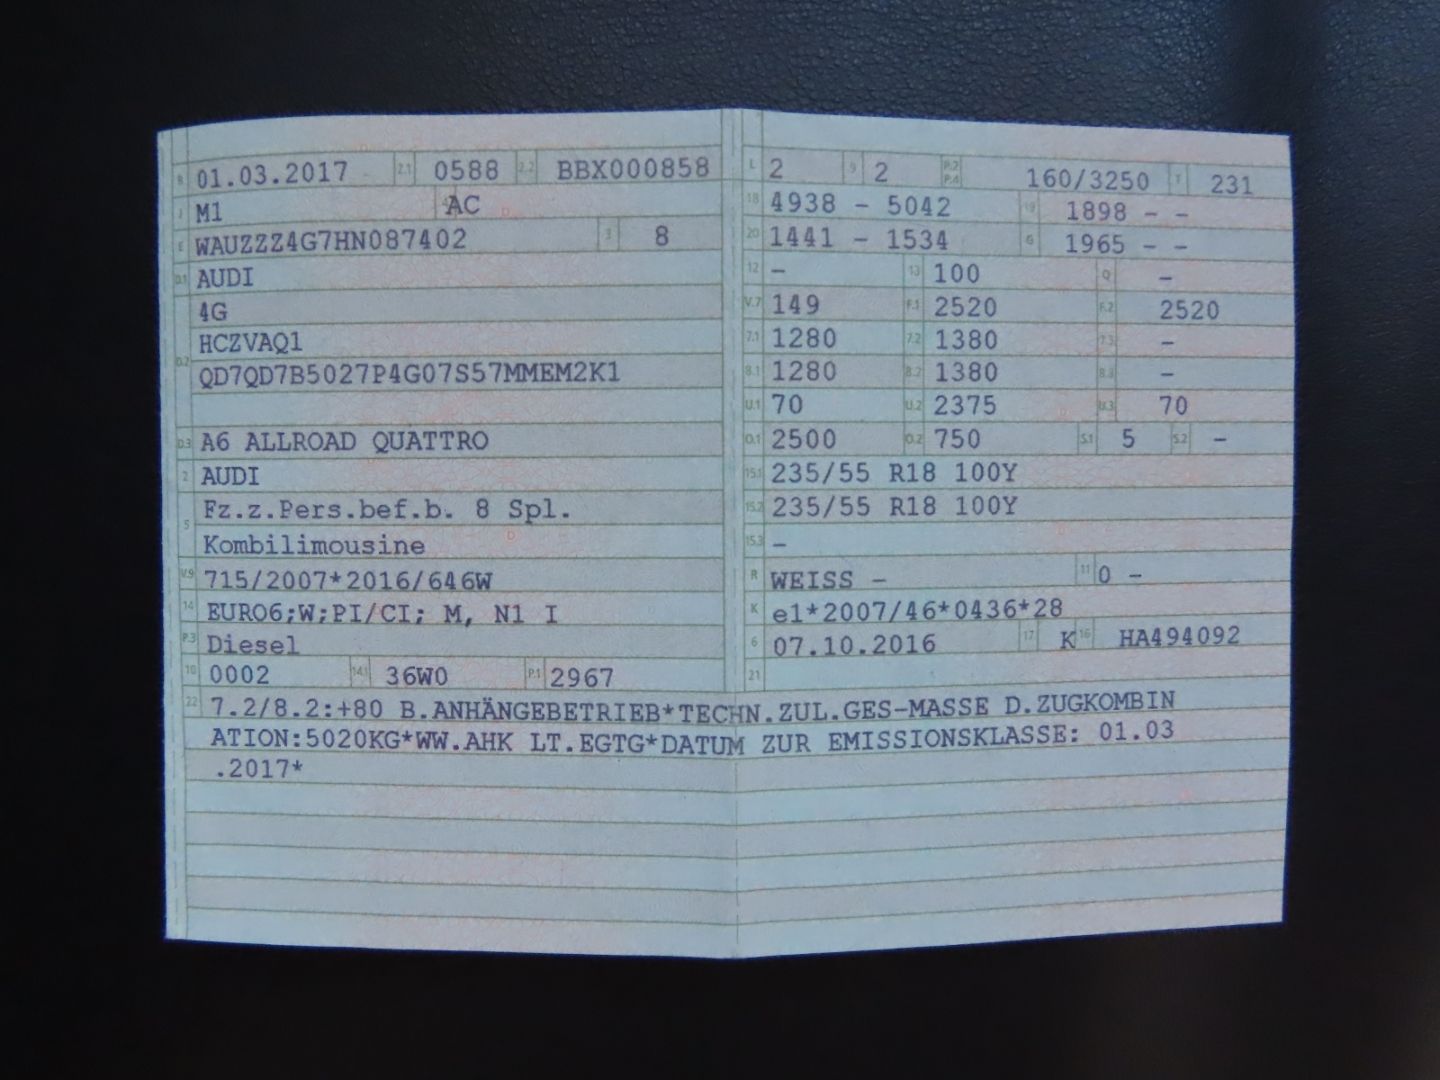 B 01.03.2017 2.1 0588 2.2 BBX000858
J M1 4 AC
E WAUZZZ4G7HN087402 3 8
D.1 AUDI
4G
HCZVAQ1
D.2 QD7QD7B5027P4G07S57MMEM2K1
D.3 A6 ALLROAD QUATTRO
2 AUDI
Fz.z.Pers.bef.b. 8 Spl.
5 Kombilimousine
V.9 715/2007*2016/646W
14 EURO6;W;PI/CI; M, N1 I
P.3 Diesel
10 0002 14.1 36W0 P.1 2967
L 2 9 2 P.2 P.4 160/3250 T 231
18 4938 - 5042 19 1898 - -
20 1441 - 1534 G 1965 - -
12 - 13 100 Q -
V.7 149 F.1 2520 F.2 2520
7.1 1280 7.2 1380 7.3 -
8.1 1280 8.2 1380 8.3 -
U.1 70 U.2 2375 U.3 70
O.1 2500 O.2 750 S.1 5 S.2 -
15.1 235/55 R18 100Y
15.2 235/55 R18 100Y
15.3 -
R WEISS - 11 0 -
K e1*2007/46*0436*28
6 07.10.2016 17 K 16 HA494092
21
22 7.2/8.2:+80 B.ANHÄNGEBETRIEB*TECHN.ZUL.GES-MASSE D.ZUGKOMBIN
ATION:5020KG*WW.AHK LT.EGTG*DATUM ZUR EMISSIONSKLASSE: 01.03
.2017*